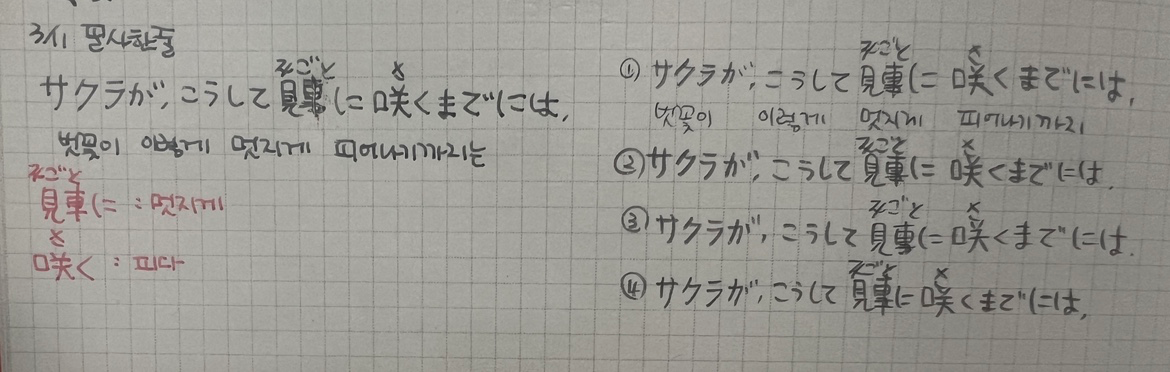 3시 필사한줄
みごと さ
サクラが、こうして見事に咲くまでには、
벚꽃이 이렇게 멋지게 피어나기까지는
みごと
見事に : 멋지게
さ
咲く : 피다
みごと さ
① サクラが、こうして見事に咲くまでには、
벚꽃이 이렇게 멋지게 피어나기까지
みごと さ
② サクラが、こうして見事に咲くまでには、
みごと さ
③ サクラが、こうして見事に咲くまでには、
みごと さ
④ サクラが、こうして見事に咲くまでには、